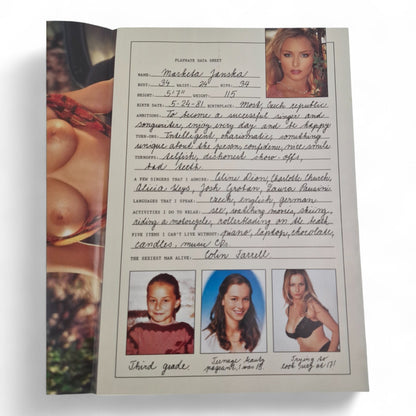 PLAYMATE DATA SHEET
NAME: Marketa Janska
BUST: 34 WAIST: 24 HIPS: 34
HEIGHT: 5'7" WEIGHT: 115
BIRTH DATE: 5-24-81 BIRTHPLACE: Most, Czech republic
AMBITIONS: To become a successful singer and
songwriter, enjoy every day and be happy
TURN-ONS: Intelligent, charismatic, something
unique about the person, confidence, nice smile
TURNOFFS: Selfish, dishonest show offs,
bad teeth.
A FEW SINGERS THAT I ADMIRE: Celine Dion, Charlotte Church,
Alicia Keys, Josh Groban, Laura Pausini
LANGUAGES THAT I SPEAK: czech, english, german
ACTIVITIES I DO TO RELAX: watching movies, skiing,
riding a motorcycle, rollerblading on the beach
FIVE ITEMS I CAN'T LIVE WITHOUT: piano, laptop, chocolate,
candles, music CDs
THE SEXIEST MAN ALIVE: Colin Farrell
Third grade.
Teenage beauty
pageant, I was 18
Trying to
look at 17!